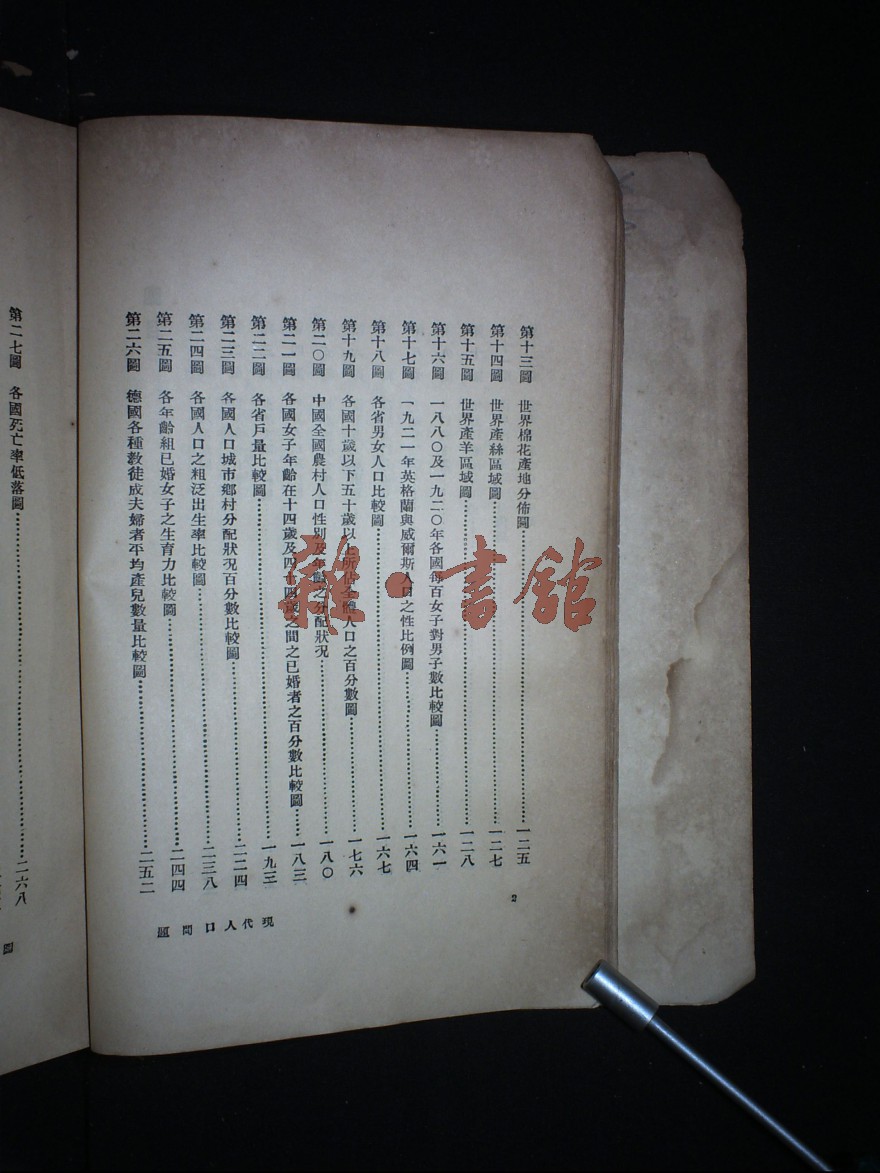 第十三圖　世界棉花產地分佈圖……一二五
第十四圖　世界產絲區域圖……一二七
第十五圖　世界產羊區域圖……一二八
第十六圖　一八八〇及一九二〇年各國每百女子對男子數比較圖……一六一
第十七圖　一九二一年英格蘭與威爾斯人口之性比例圖……一六四
第十八圖　各省男女人口比較圖……一六七
第十九圖　各國十歲以下五十歲以上所佔全體人口之百分數圖……一七六
第二〇圖　中國全國農村人口性別及年齡之分配狀況……一八〇
第二一圖　各國女子年齡在十四歲及四十四歲之間之已婚者之百分數比較圖……一八三
第二二圖　各省戶量比較圖……一九三
第二三圖　各國人口城市鄉村分配狀況百分數比較圖……二二四
第二四圖　各國人口之粗泛出生率比較圖……二三八
第二五圖　各年齡組已婚女子之生育力比較圖……二四四
第二六圖　德國各種教徒成夫婦者平均產兒數量比較圖……二五二
2
現代人口問題
第二七圖　各國死亡率低落圖……二六八
圖
雜·書館